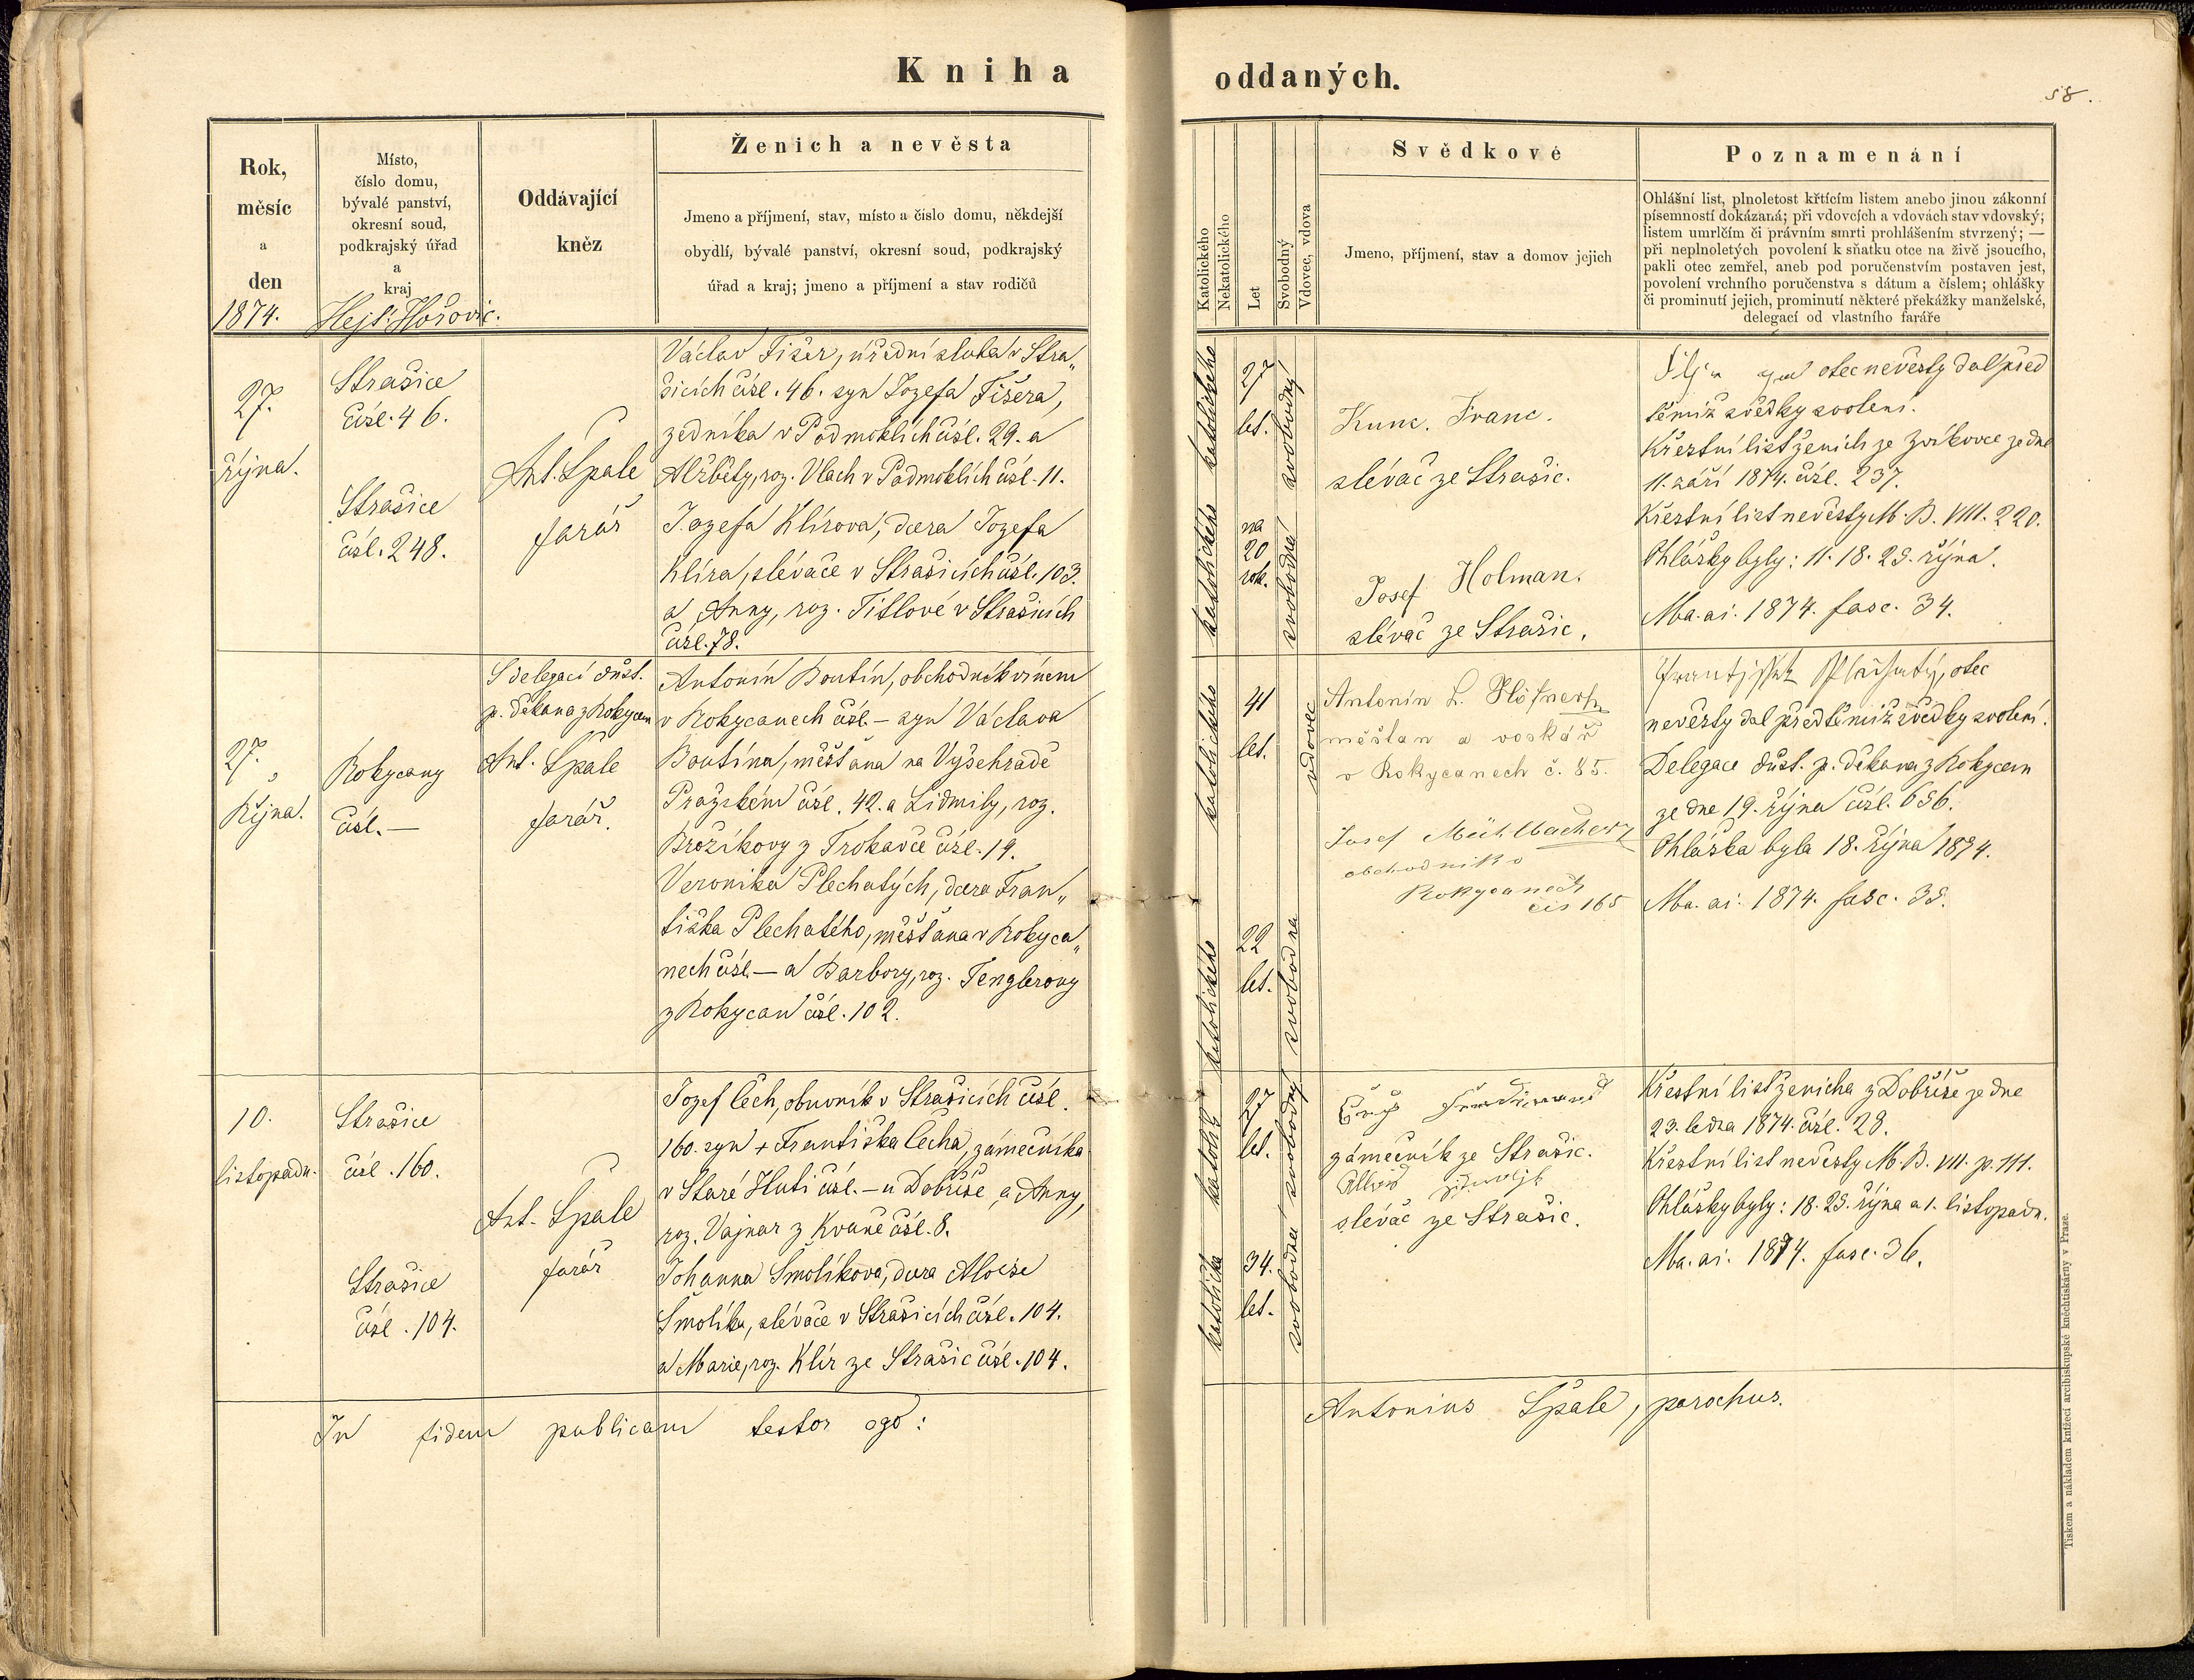 Kniha oddaných.
58.
Rok,
měsíc
a
den
1874.
Místo,
číslo domu,
bývalé panství,
okresní soud,
podkrajský úřad
a
kraj
Hejt. Hořovic.
Oddávající
kněz
Ženich a nevěsta
Jmeno a příjmení, stav, místo a číslo domu, někdejší
obydlí, bývalé panství, okresní soud, podkrajský
úřad a kraj; jmeno a příjmení a stav rodičů
Katolického
Nekatolického
Let
Svobodný
Vdovec, vdova
Svědkové
Jmeno, příjmení, stav a domov jejich
Poznamenání
Ohlášní list, plnoletost křtícím listem anebo jinou zákonní
písemností dokázaná; při vdovcích a vdovách stav vdovský;
listem umrlčím či právním smrti prohlášením stvrzený; —
při neplnoletých povolení k sňatku otce na živě jsoucího,
pakli otec zemřel, aneb pod poručenstvím postaven jest,
povolení vrchního poručenstva s dátum a číslem; ohlášky
či prominutí jejich, prominutí některé překážky manželské,
delegací od vlastního faráře
27.
října.
Strašice
čísl. 46.
Strašice
čísl. 248.
Ant. Špale
farář
Václav Fišer, úřední sluha v Stra„
šicích čísl. 46. syn Jozefa Fišera,
zedníka v Podmoklích čísl. 29. a
Alžběty, roz. Vlach v Podmoklích čísl. 11.
Jozefa Klírova, dcera Jozefa
Klíra, slévače v Strašicích čísl. 103.
a Anny, roz. Titlové v Strašicích
čísl. 78.
katolického
katolického
27
let.
na
20
rok.
svobodný
svobodná
Kunc. Franc.
slévač ze Strašic.
Josef Holman.
slévač ze Strašic.
otec nevěsty dal před
těmiž svědky svolení.
Křestní list ženich ze Zvíkovce ze dne
11. září 1874. čísl. 237.
Křestní list nevěsty M. B. VIII. 220.
Ohlášky byly: 11. 18. 25. října.
Ma. ai. 1874. fasc. 34.
27.
Října.
Rokycany
čísl. —
S delegací důst.
p. děkana z Rokycan
Ant. Špale
farář.
Antonín Boutín, obchodník vínem
v Rokycanech čísl. — syn Václava
Boutína, měšťana na Vyšehradě
Pražském čísl. 42. a Lidmily, roz.
Brožíkovy z Trokavce čísl. 19.
Veronika Plechatých, dcera Fran„
tiška Plechatého, měšťana v Rokyca„
nech čísl. — a Barbory, roz. Tenglerovy
z Rokycan čísl. 102.
katolického
katolického
41
let.
22
let.
vdovec
svobodna
Antonín L. Höfner
měšťan a voskář
v Rokycanech č. 85.
Josef Mühlbacher
obchodník v
Rokycanech
čís 165
František Plechatý, otec
nevěsty dal před těmiž svědky svolení.
Delegace důst. p. děkana z Rokycan
ze dne 19. října čísl. 656.
Ohláška byla 18. října 1874.
Ma. ai. 1874. fasc. 35.
10.
listopadu.
Strašice
čísl. 160.
Strašice
čísl. 104.
Ant. Špale
farář
Jozef Čech, obuvník v Strašicích čísl.
160. syn + Františka Čecha, zámečníka
v Staré Huti čísl. — u Dobříše, a Anny,
roz. Vajnar z Kvaně čísl. 8.
Johanna Smolíkova, dcera Aloise
Smolíka, slévače v Strašicích čísl. 104.
a Marie, roz. Klír ze Strašic čísl. 104.
katolík
katolička
27
let.
34.
let.
svobodný
svobodna
zámečník ze Strašic.
slévač ze Strašic.
Křestní list ženicha z Dobříše ze dne
23. ledna 1874. čísl. 28.
Křestní list nevěsty M. B. VII. p. 111.
Ohlášky byly: 18. 25. října a 1. listopadu.
Ma. ai. 1874. fasc. 36.
In fidem publicam testor ego: Antonius Špale, parochus.
Tiskem a nákladem knížecí arcibiskupské knëhtiskárny v Praze.